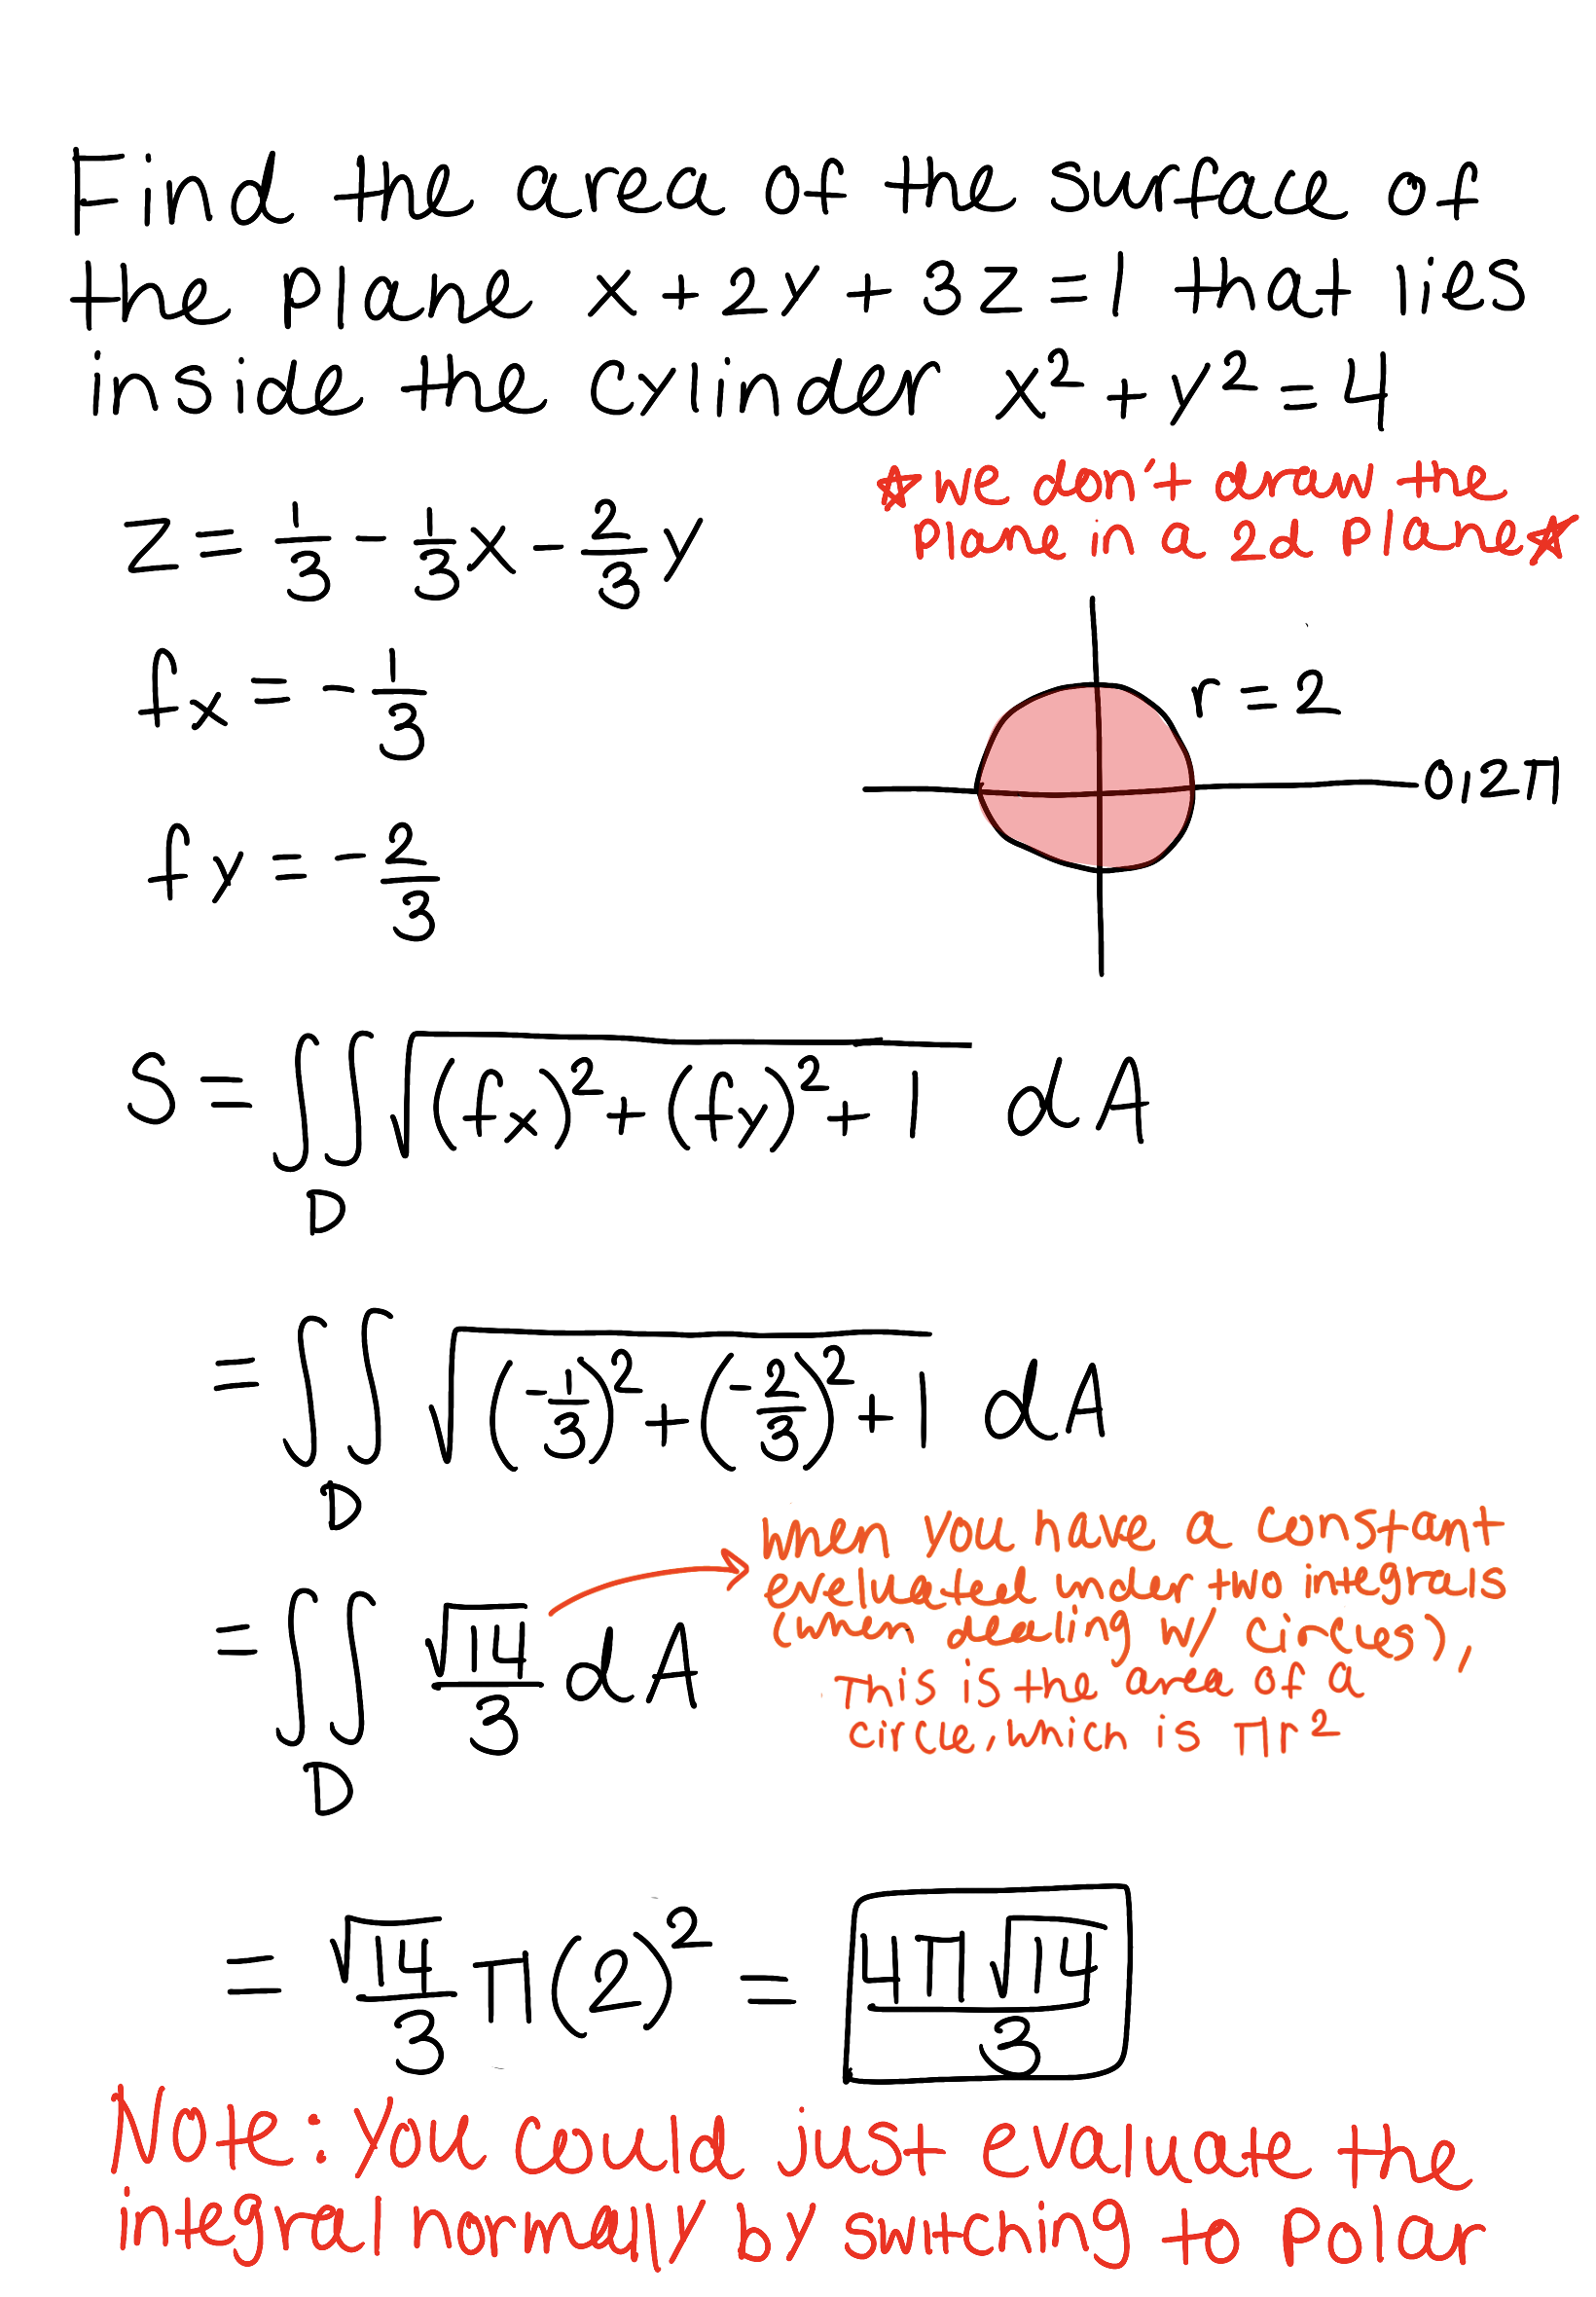 Find the area of the surface of
the plane x + 2y + 3z = 1 that lies
inside the cylinder x² + y² = 4
☆ we don't draw the
plane in a 2d plane ☆
z = 1/3 - 1/3 x - 2/3 y
fx = - 1/3
r = 2
0,2π
fy = - 2/3
S = ∬_D √((fx)² + (fy)² + 1) dA
= ∬_D √((-1/3)² + (-2/3)² + 1) dA
when you have a constant
eveluated under two integrals
(when dealing w/ circles),
This is the area of a
circle, which is πr²
= ∬_D √14/3 dA
= √14/3 π(2)² = 4π√14/3
Note: you could just evaluate the
integral normally by switching to polar